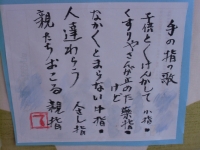 手の指の歌
子供とくけんかして小指・
くすりやさんが止めた薬指・
けど
なかくとまらない中指・
人達わらう 人さし指
親たちおこる親指